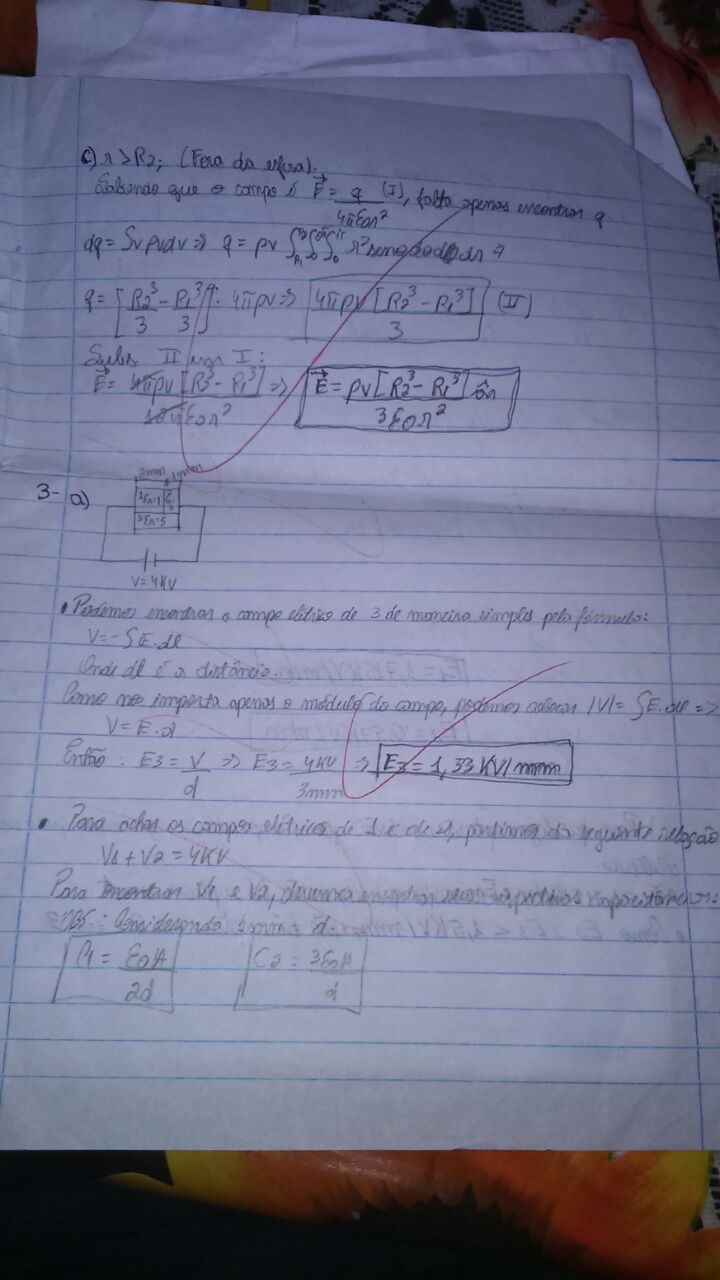 c) r > R2; (Fora da esfera).
Sabendo que o campo é E⃗ = q/4πε0r² (I), falta apenas encontrar q
dq = ∫v ρv dv => q = ρv
q = [R2³/3 - R1³/3] . 4πρv => 4πρv [R2³ - R1³]/3 (II)
Subs II em I:
E⃗ = 4πρv [R2³ - R1³]/ε0r² => E⃗ = ρv [R2³ - R1³]/3ε0r² âr
3- a)
2mm 1mm
1 εr=1
3 εr=5
V = 4KV
• Podemos encontrar o campo elétrico de 3 de maneira simples pela fórmula:
V = -∫E.dl
Onde dl é a distância.
Como nos importa apenas o módulo do campo, podemos colocar |V| = ∫E.dl =>
V = E.d
Então: E3 = V/d => E3 = 4KV/3mm => E3 = 1,33 KV/mm
• Para achar os campos elétricos de 1 e de 2, partimos da seguinte relação
V1 + V2 = 4KV
Para encontrar V1 e V2, devemos encontrar
Considerando 1mm = d.
C1 = ε0A/2d C2 = 3ε0A/d